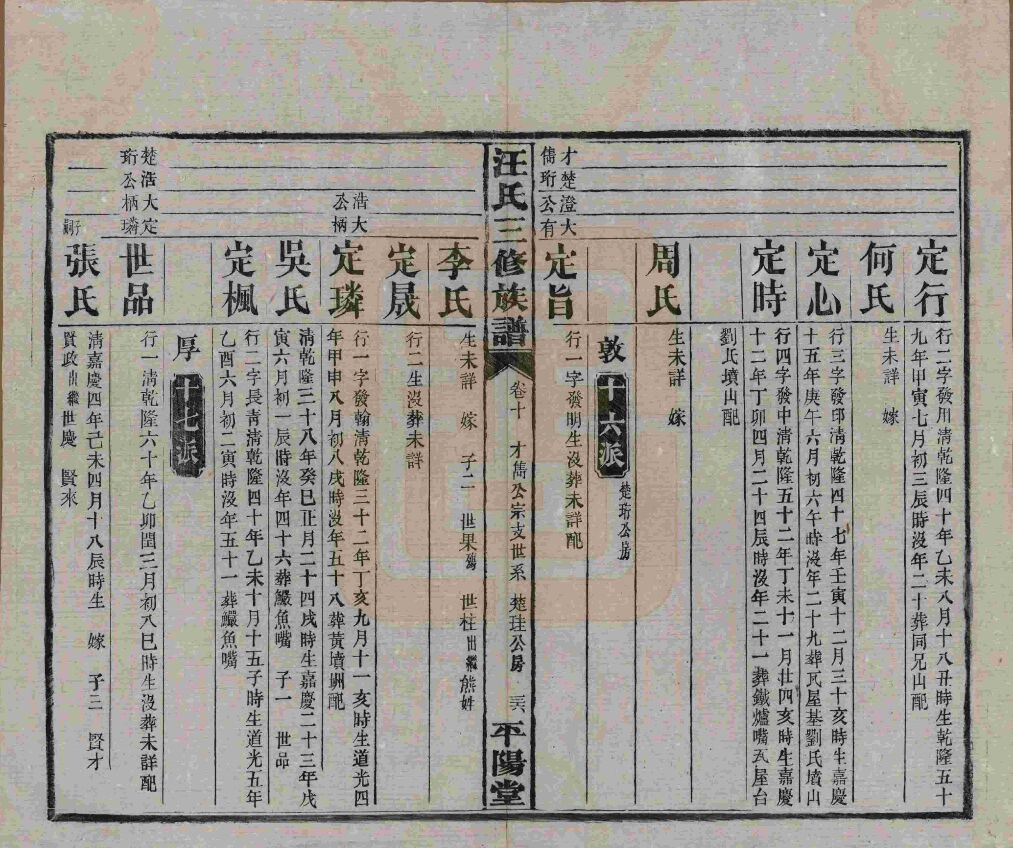 定行
行二字發用淸乾隆四十年乙未八月十八丑時生乾隆五十
九年甲寅七月初三辰時沒年二十葬同兄山配
何氏
生未詳　嫁
定心
行三字發印淸乾隆四十七年壬寅十二月三十亥時生嘉慶
十五年庚午六月初六午時沒年二十九葬瓦屋基劉氏墳山
定時
行四字發中淸乾隆五十二年丁未十一月廿四亥時生嘉慶
十二年丁卯四月二十四辰時沒年二十一葬鐵爐嘴瓦屋台
劉氏墳山配
周氏
生未詳　嫁
敦　十六派　楚珩公房
才楚澄大
儁珩公有
定旨
行一字發明生沒葬未詳配
汪氏三修族譜
卷十　才儁公宗支世系　楚珪公房
平陽堂
李氏
生未詳　嫁　子二　世果　世柱出繼熊姓
定晟
行二生沒葬未詳
浩大
公柄
定璘
行一字發翰淸乾隆三十二年丁亥九月十一亥時生道光四
年甲申八月初八戌時沒年五十八葬黃墳配
吳氏
淸乾隆三十八年癸巳正月二十四戌時生嘉慶二十三年戊
寅六月初一辰時沒年四十六葬鱺魚嘴　子一　世品
定楓
行二字長靑淸乾隆四十年乙未十月十五子時生道光五年
乙酉六月初二寅時沒年五十一葬鱺魚嘴
厚　十七派
楚浩大定
珩公柄璘
世品
行一淸乾隆六十年乙卯閏三月初八巳時生沒葬未詳配
張氏
淸嘉慶四年己未四月十八辰時生　嫁　子三　賢才
賢政出繼世慶　賢來